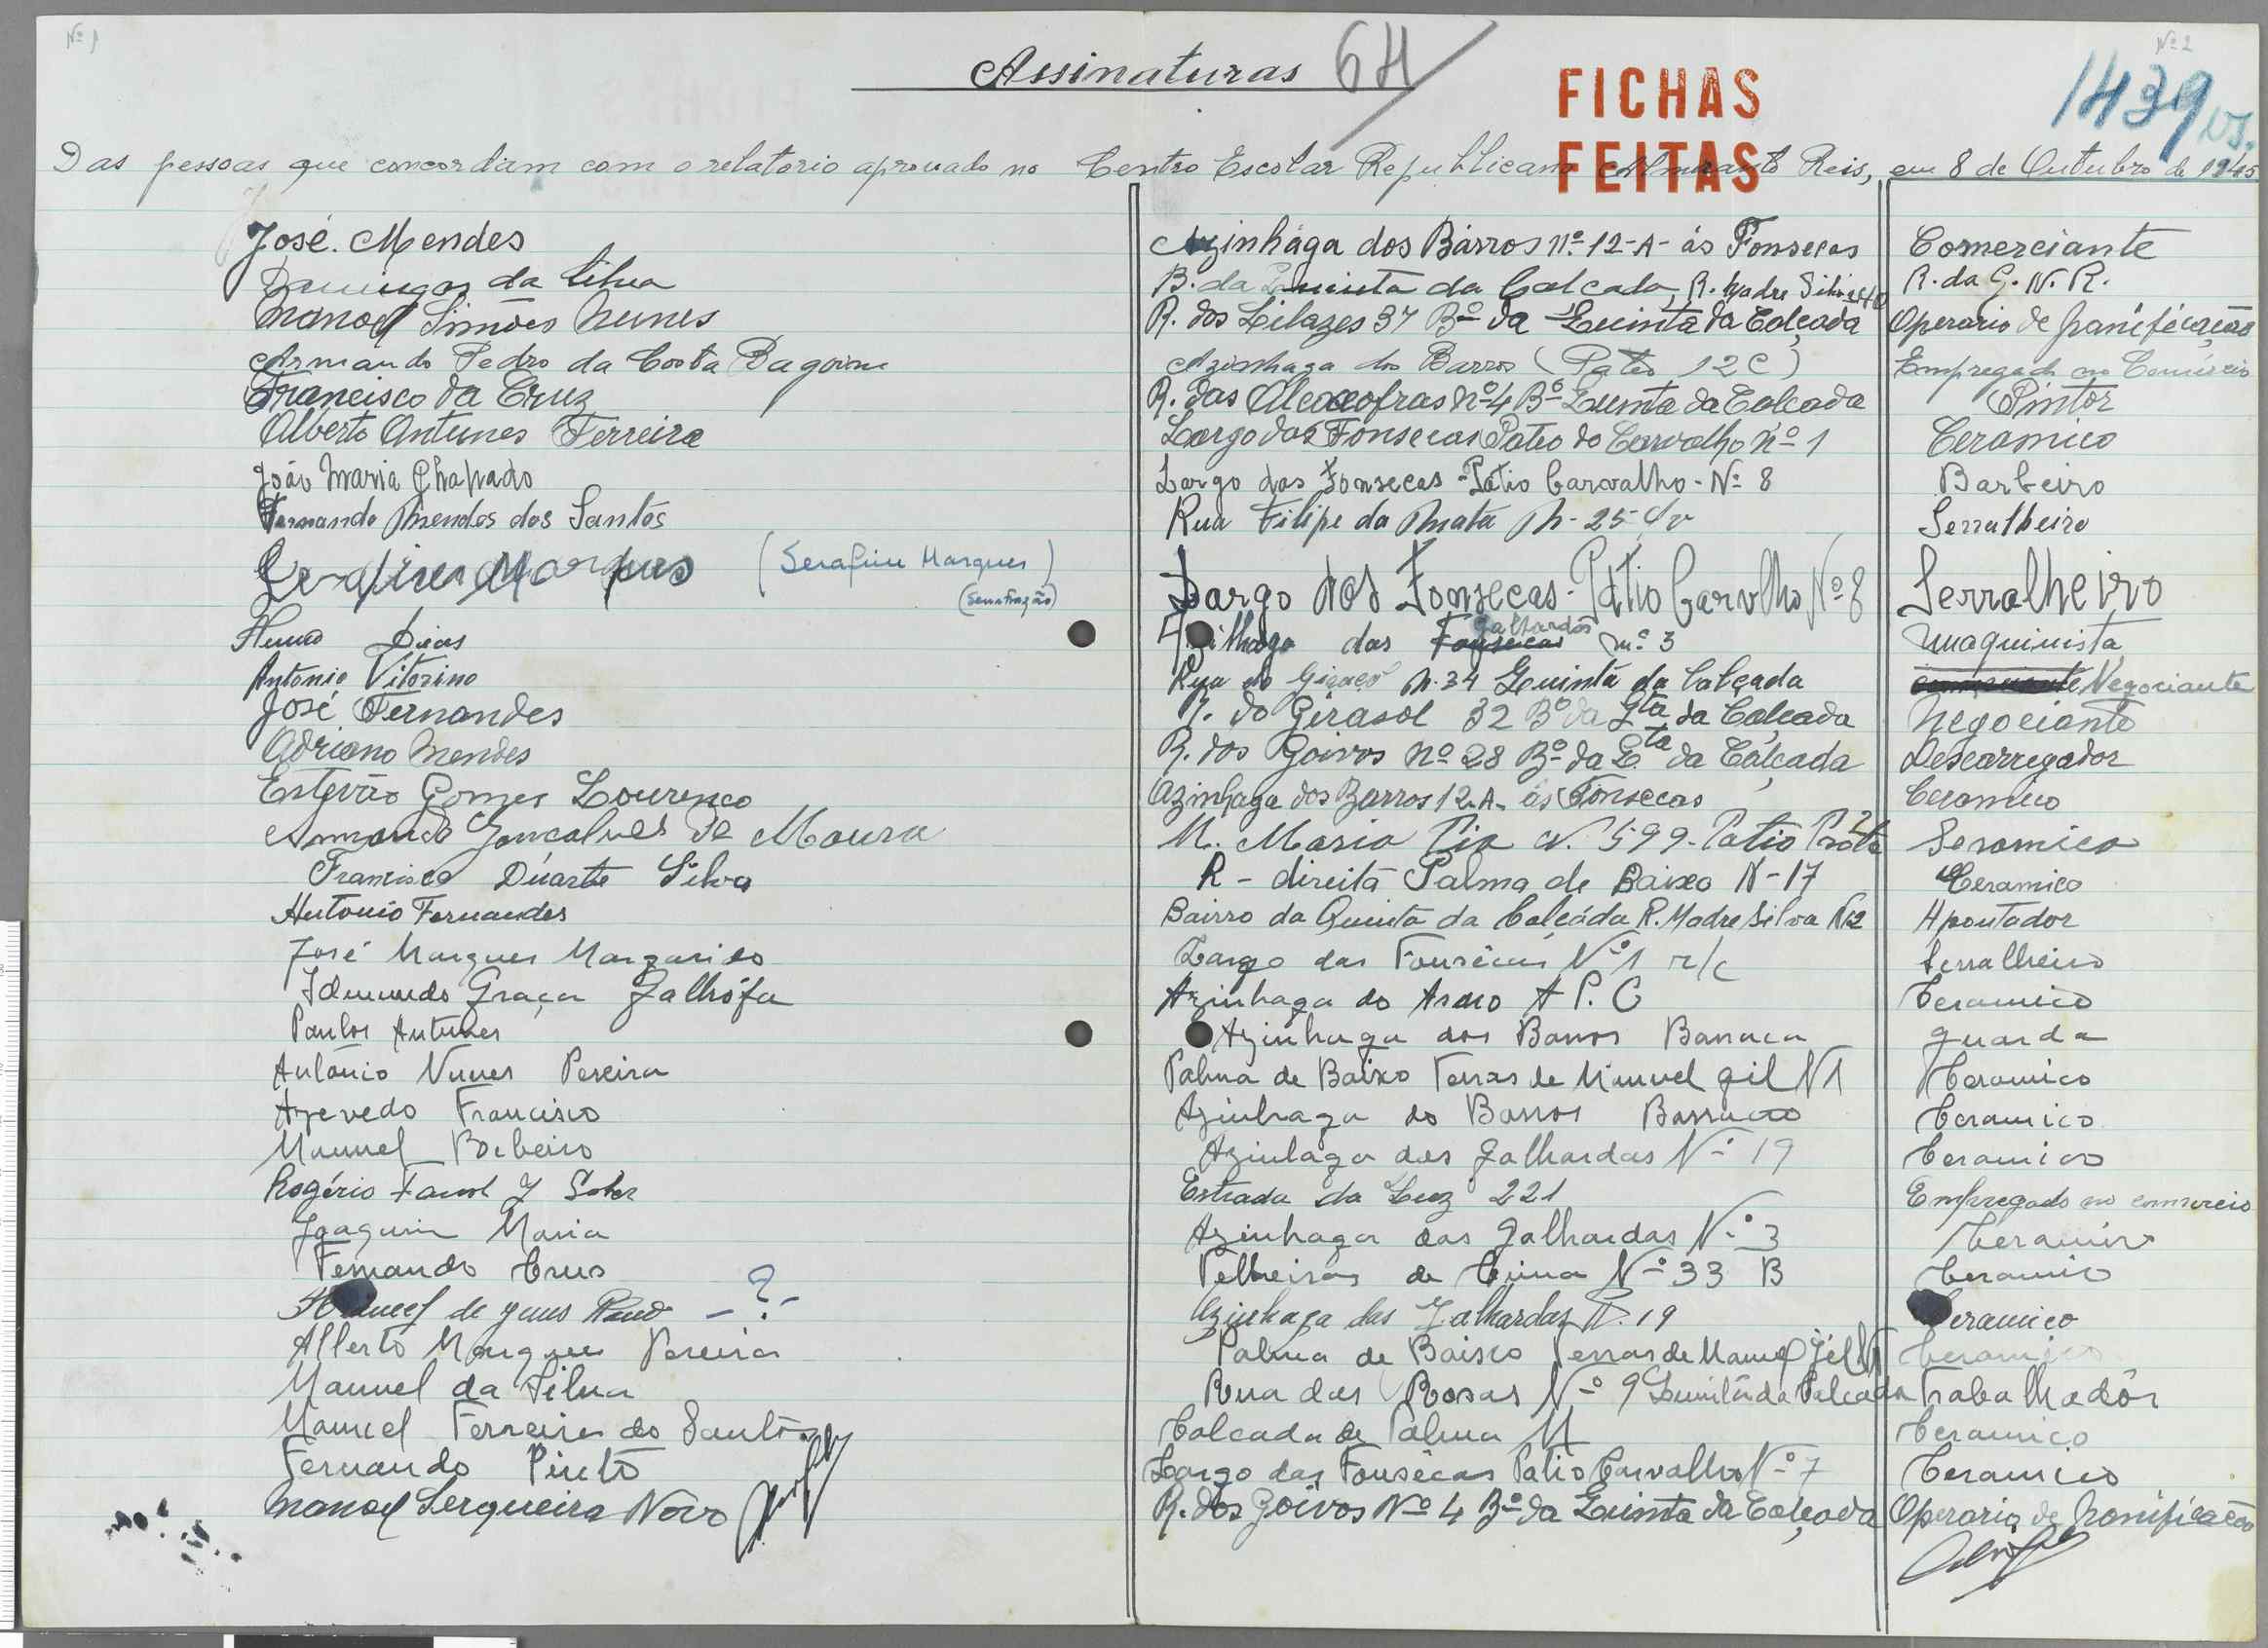 Nº 1
Nº 2
Assinaturas 64
FICHAS
FEITAS
1439
Das pessoas que concordam com o relatorio aprovado no Centro Escolar Republicano Almirante Reis, em 8 de Outubro de 1945
José Mendes Azinhága dos Bárros nº 12-A- ás Fonsecas Comerciante
Domingos da Silva B. da Quinta da Calcada, R. Madre Silva R. da G. N. R.
Manoel Simões Nunes R. dos Lilazes 37 Bº da Quinta da Calçada Operario de panificação
Armando Pedro da Costa Azinhaga dos Barros (Pateo 12 C) Empregado no Comércio
Francisco da Cruz R. das Alcacofras nº 4 Bº Quinta da Calcada Pintor
Alberto Antunes Ferreira Largo das Fonsecas Pateo do Carvalho nº 1 Ceramico
João Maria Chapado Largo das Fonsecas - Pátio Carvalho - Nº 8 Barbeiro
Fernando Mendes dos Santos Rua Filipe da Mata N- 25 Serralheiro
Serafim Marques (Serafim Marques) Largo das Fonsecas - Pátio Carvalho Nº 8 Serralheiro
Dias das Fonsecas Galhardas nº 3 maquinista
Antonio Vitorino Rua do N. 34 Quinta da Calçada Negociante
José Fernandes R. do Girasol 32 Bº da Qta da Calçada Negociante
Adriano Mendes R. dos Goivos Nº 28 Bº da Qta da Calçada Descarregador
Estevão Gomes Lourenco Azinhaga dos Barros 12-A- ás Fonsecas Ceramico
Armando Goncalves de Moura Maria Pia N. 599 - Patio Seramico
Francisco Duarte Silva R - direita Palma de Baixo N-17 Ceramico
Antonio Fernandes Bairro da Quinta da Calcáda R. Madre Silva Nº2 Apontador
José Marques Margarido Largo das Fonsêcas Nº 1 r/c Serralheiro
Edmundo Graça Galhófa Azinhaga do A P. C Ceramico
Paulos Antunes Azinhaga dos Barros Barraca guarda
António Nunes Pereira Palma de Baixo Terras de Manuel gil N1 Ceramico
Azevedo Francisco Azinhaga do Barros Barraca Ceramico
Manuel Ribeiro Azinhaga das Galhardas Nº 19 Ceramico
Rogério Estrada da Luz 221 Empregado no comercio
Joaquim Maria Azinhaga das Galhardas Nº 3 Ceramico
Fernando Crus Telheiras de Cima Nº 33 B Ceramico
Manuel de -?- Azinhaga das Galhardas N. 19 Ceramico
Alberto Marques Pereira Palma de Baixo Terras de Manuel Gil N1 Ceramico
Manuel da Silva Rua das Rosas Nº 9 Quinta da Calcada Trabalhadôr
Manuel Ferreira dos Santos Calcada de Palma M Ceramico
Fernando Pinto Largo das Fonsêcas Patio Carvalho Nº 7 Ceramico
Manoel Serqueira Novo R. dos Goivos Nº 4 Bº da Quinta da Calçada Operario de Panificação